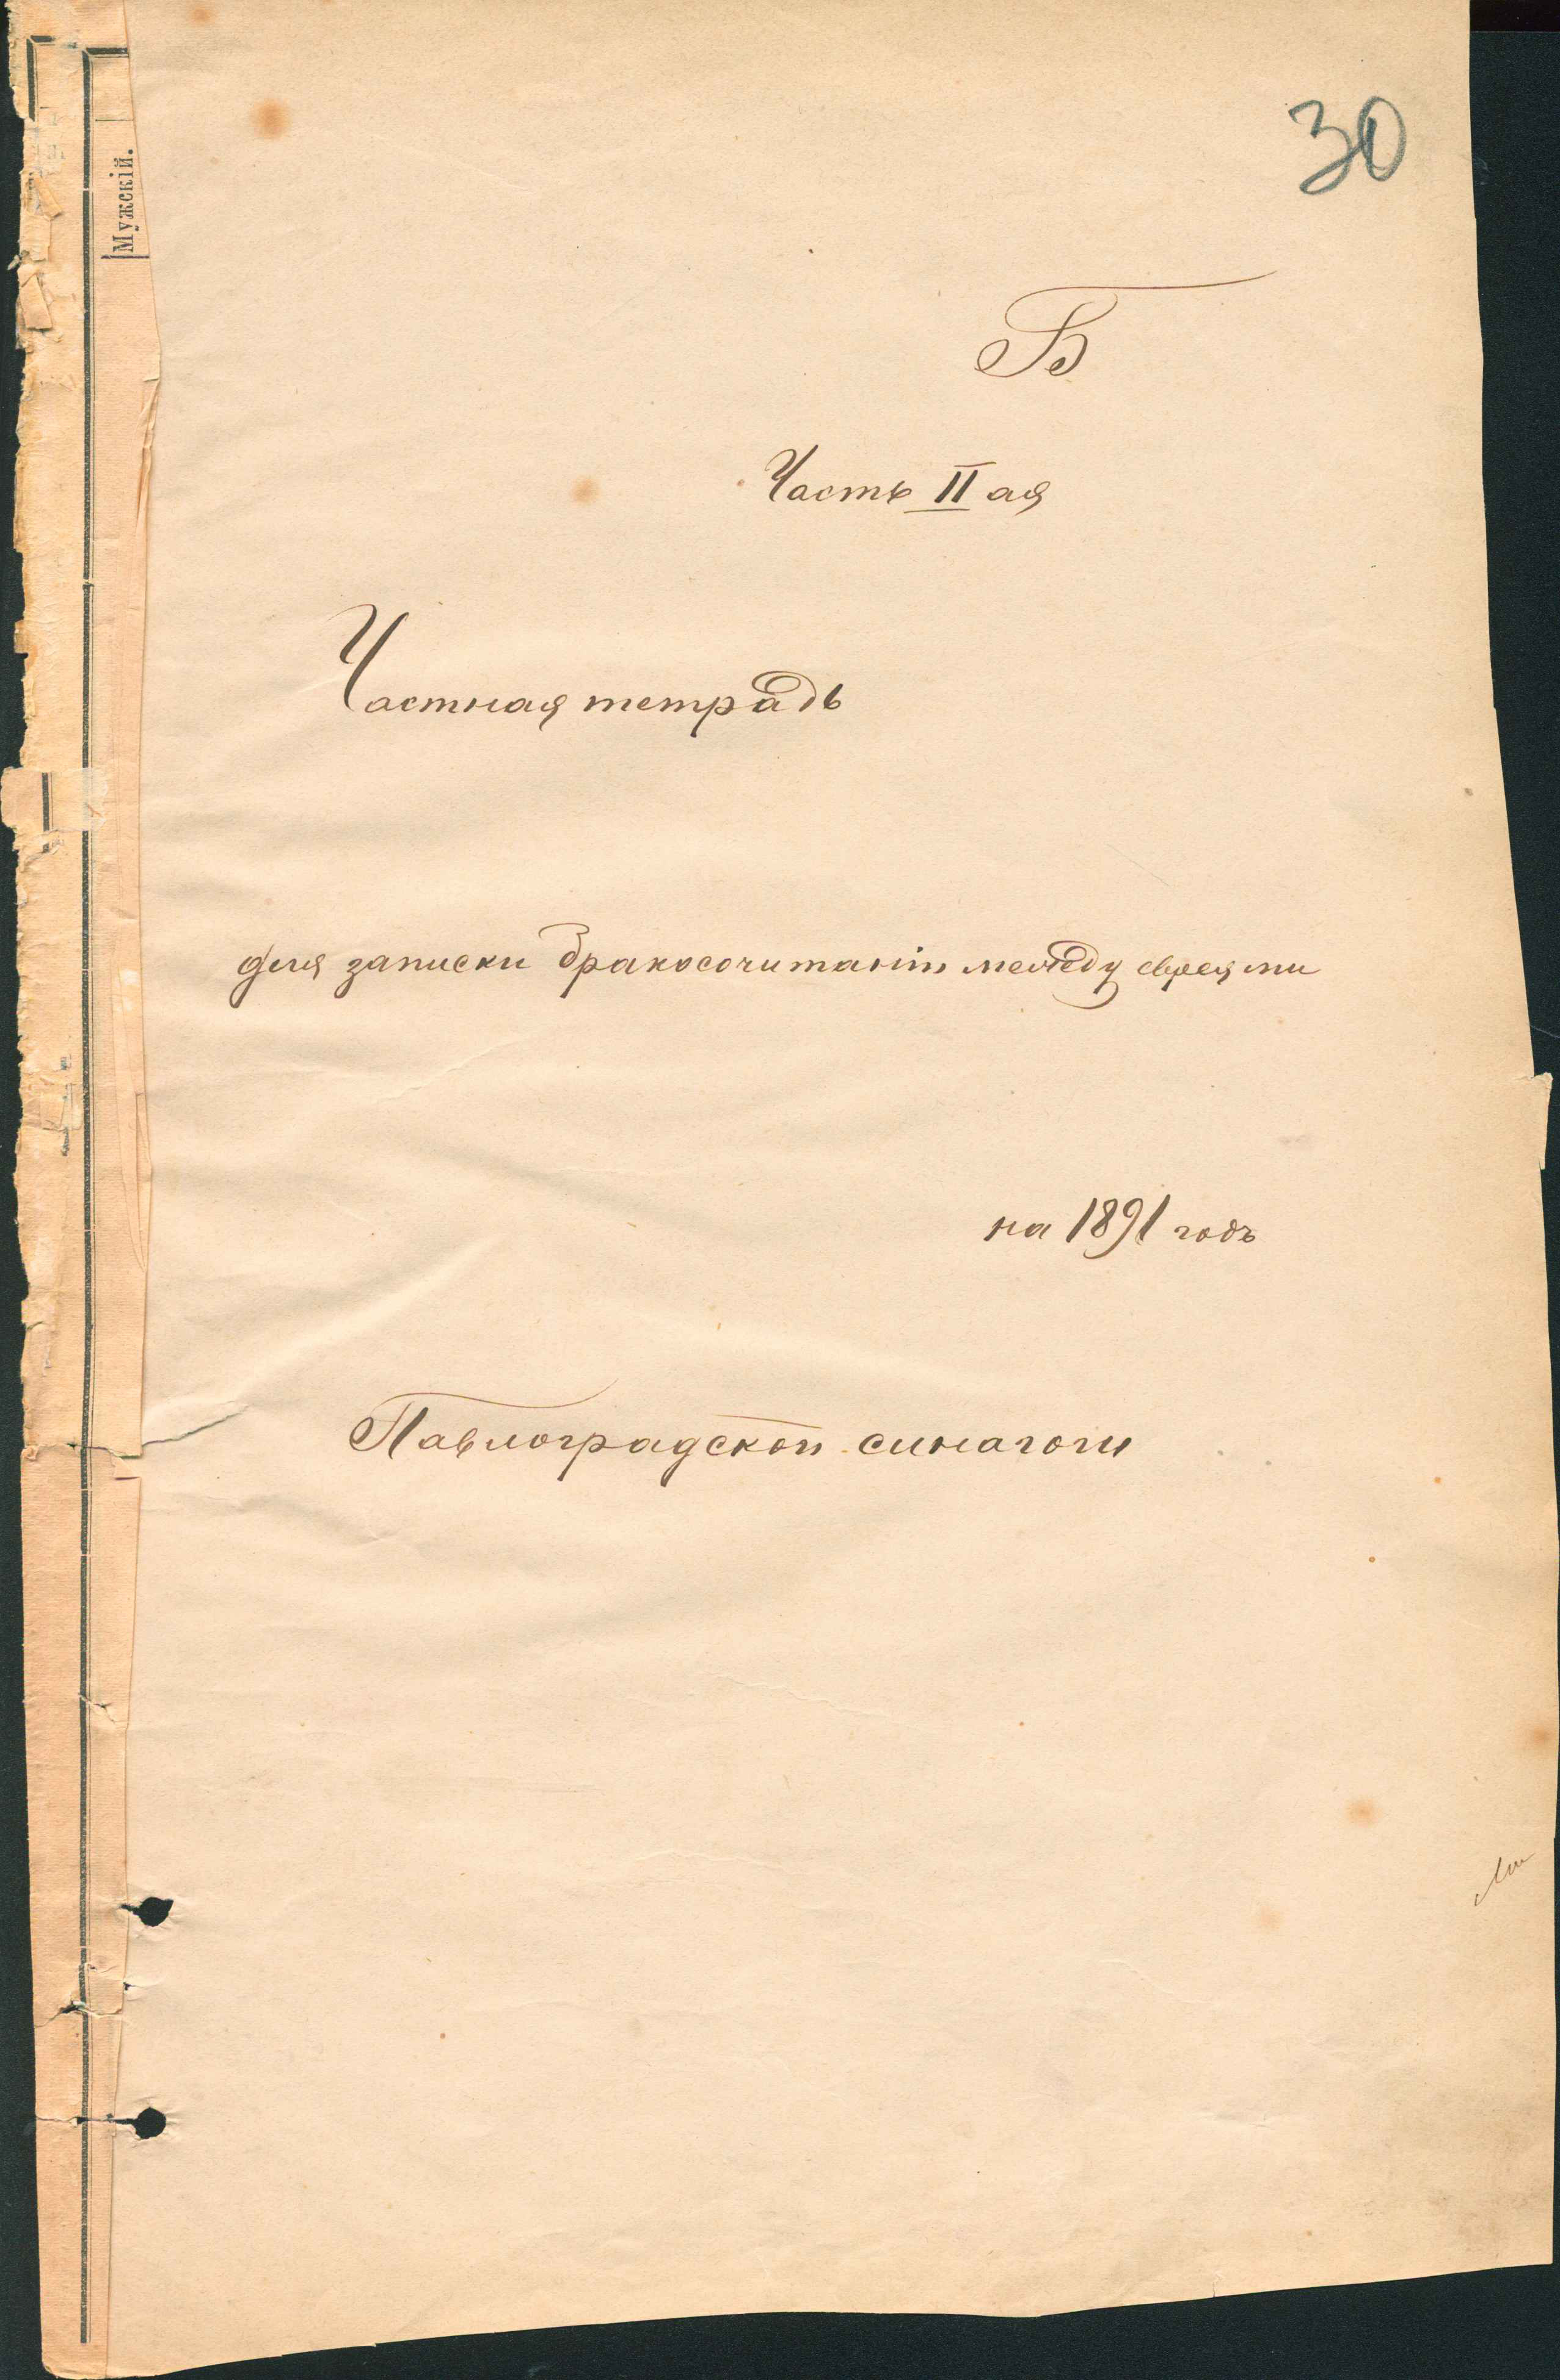 30
Мужскій.
Б
Часть II ая
Частная тетрадь
для записки бракосочитаній между евреями
на 1891 годъ
Павлоградской синагоги